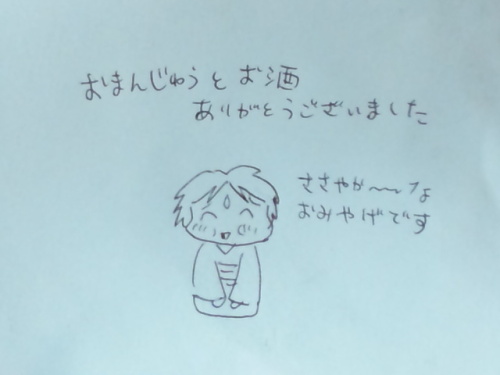 おまんじゅうと お酒
ありがとうございました
ささやか〜〜な
おみやげです